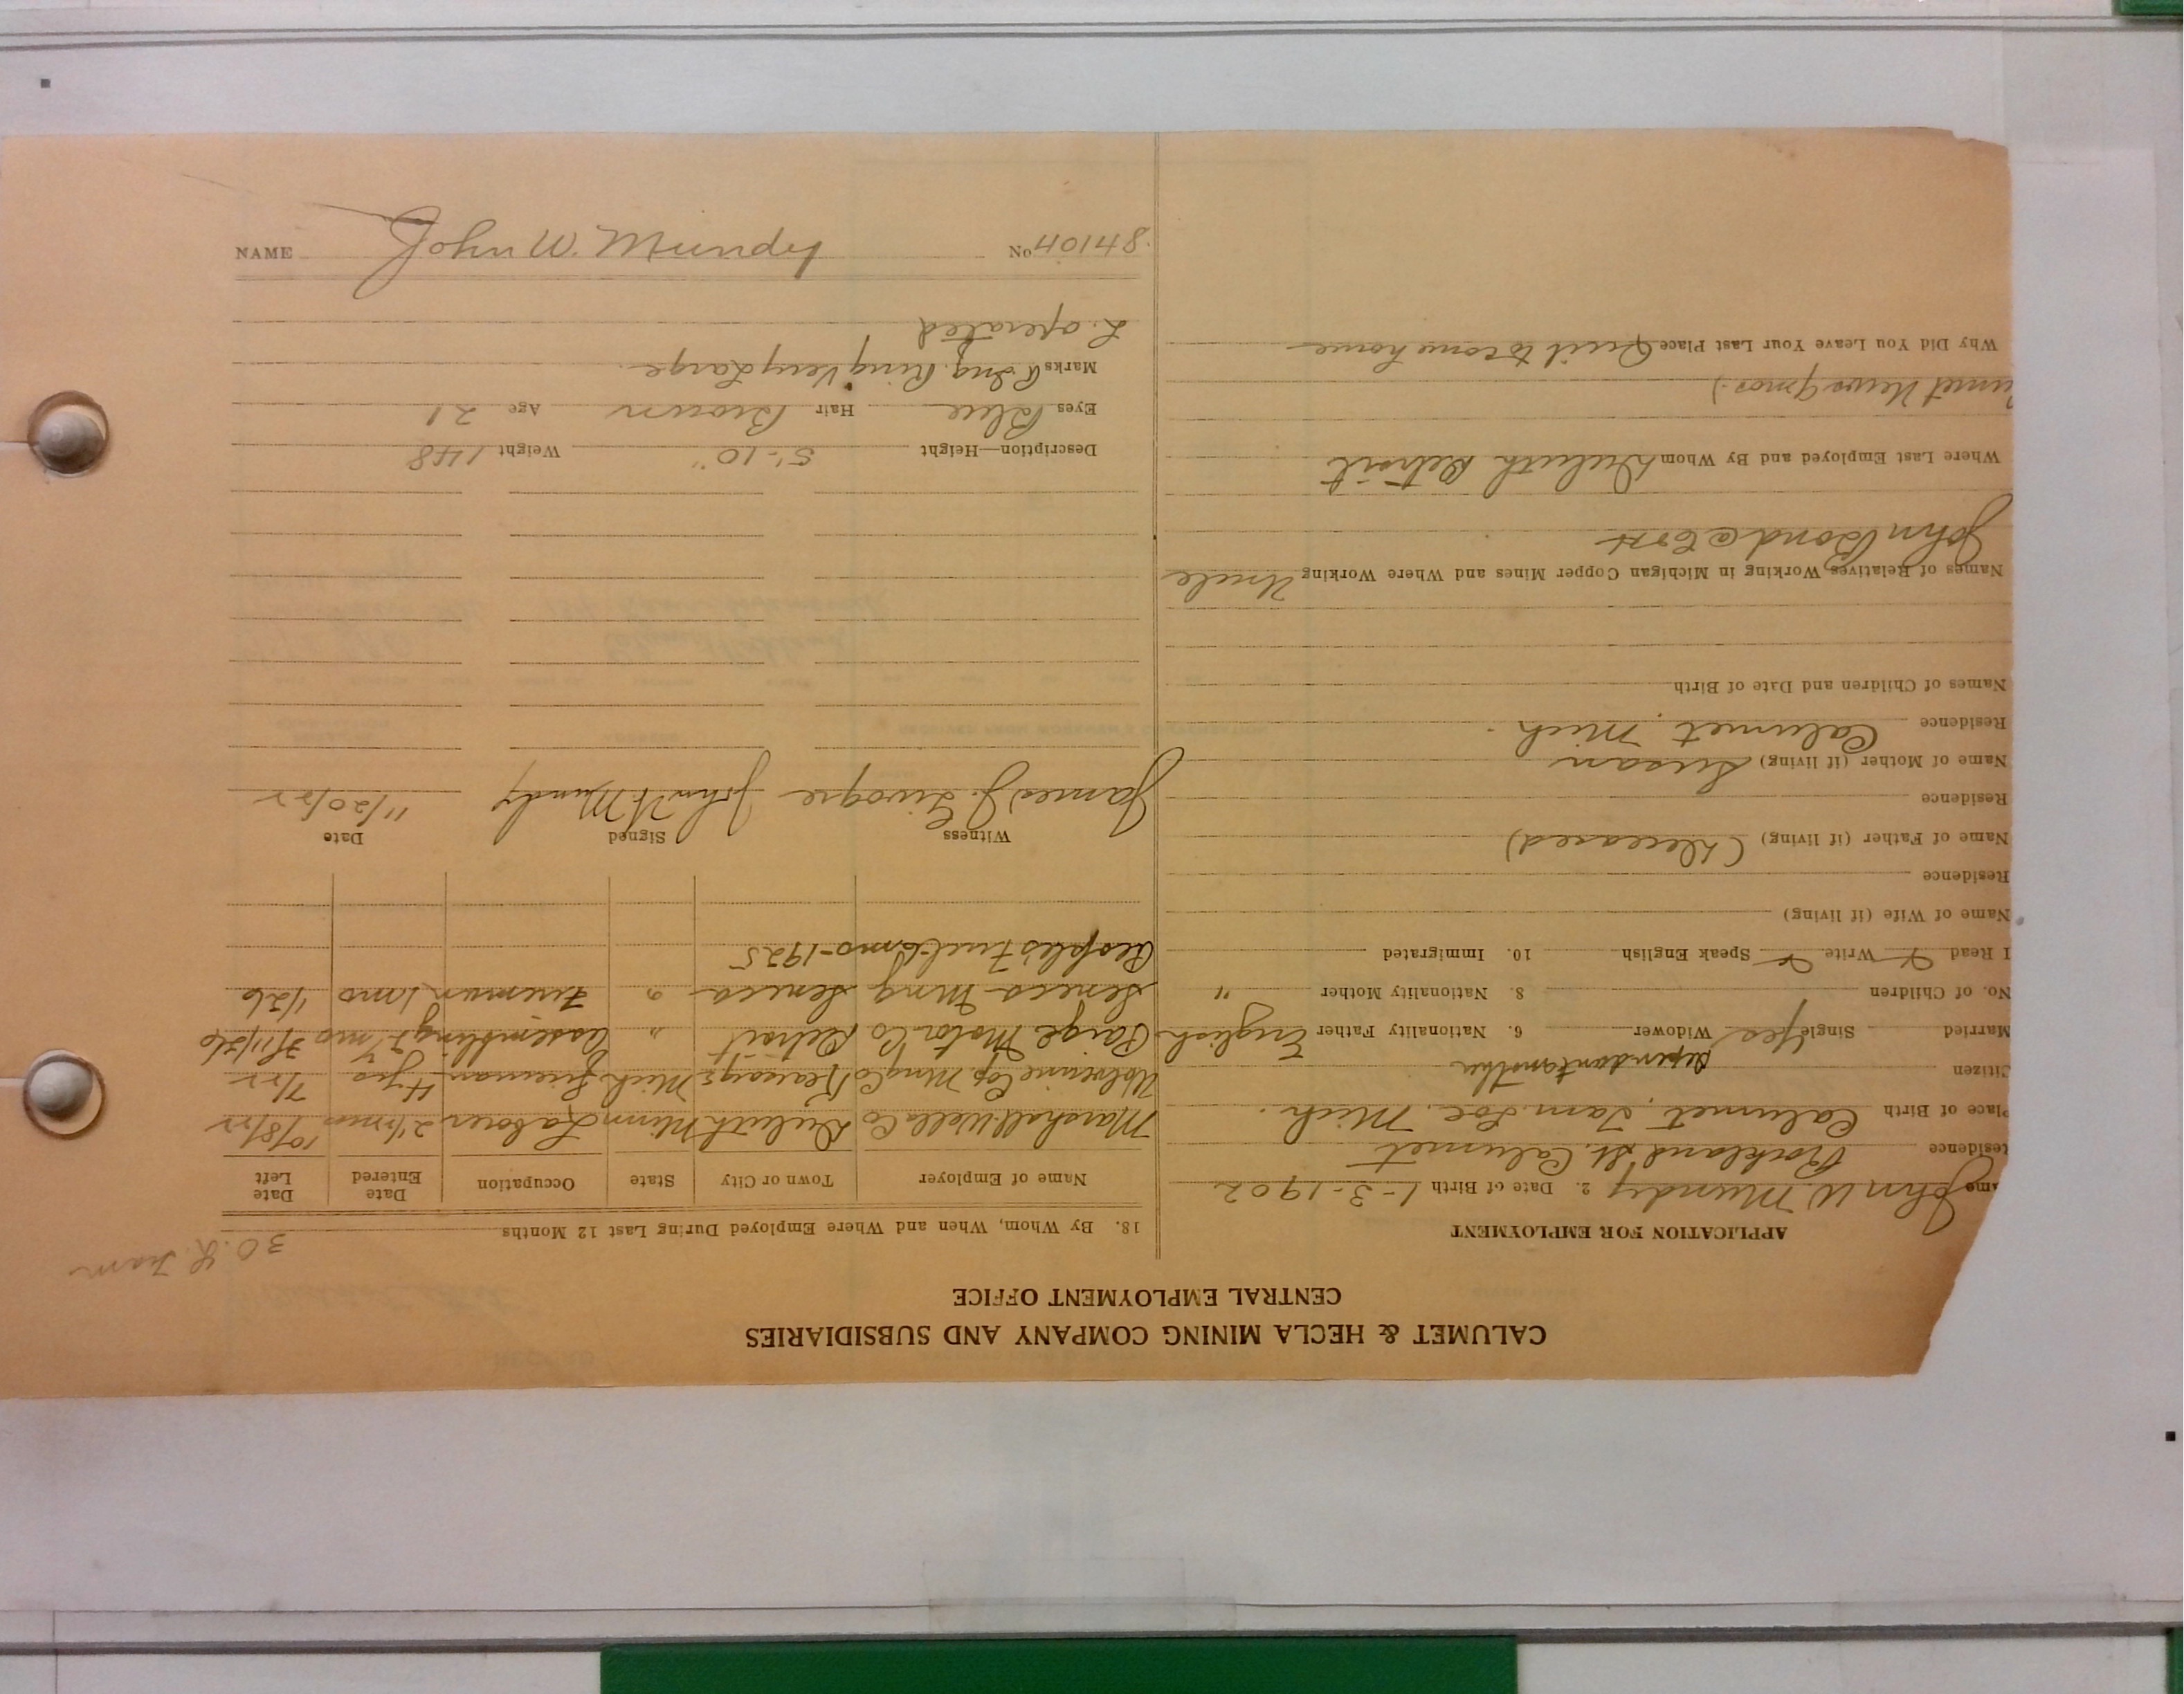 CALUMET & HECLA MINING COMPANY AND SUBSIDIARIES
CENTRAL EMPLOYMENT OFFICE
APPLICATION FOR EMPLOYMENT
ame John W Mundy 2. Date of Birth 1-3-1902
Residence Rockland St. Calumet
Place of Birth Calumet, Tam. Loc. Mich.
Citizen Dependant mother
Married Single Yes Widower 6. Nationality Father English
No. of Children 8. Nationality Mother "
I Read Write Speak English 10. Immigrated
Name of Wife (if living)
Residence
Name of Father (if living) (Deceased)
Residence
Name of Mother (if living) Susan
Residence Calumet, Mich.
Names of Children and Date of Birth
Names of Relatives Working in Michigan Copper Mines and Where Working Uncle
John Bond @
Where Last Employed and By Whom Duluth Detroit
umet News 9 mos.)
Why Did You Leave Your Last Place Quit to come home
30. L. Tram
18. By Whom, When and Where Employed During Last 12 Months
Name of Employer Town or City State Occupation Date Entered Date Left
Marshall Wells Co Duluth Minn Laborer 2½ mos 10/8/22
Wolverine Cop Mng Co Kearsarge Mich Fireman 4 yrs 7/22
Paige Motor Co Detroit " Assembling 7 mo 3/11/26
Seneca Mng Seneca " Fireman 1 mo 1/26
Peoples Fuel 6 mo - 1925
Witness Signed Date
James J. John W. Mundy 11/20/22
Description—Height 5'-10" Weight 148
Eyes Blue Hair Brown Age 21
Marks R. Ing. Ring Very Large
L. operated
NAME John W. Mundy No 84104